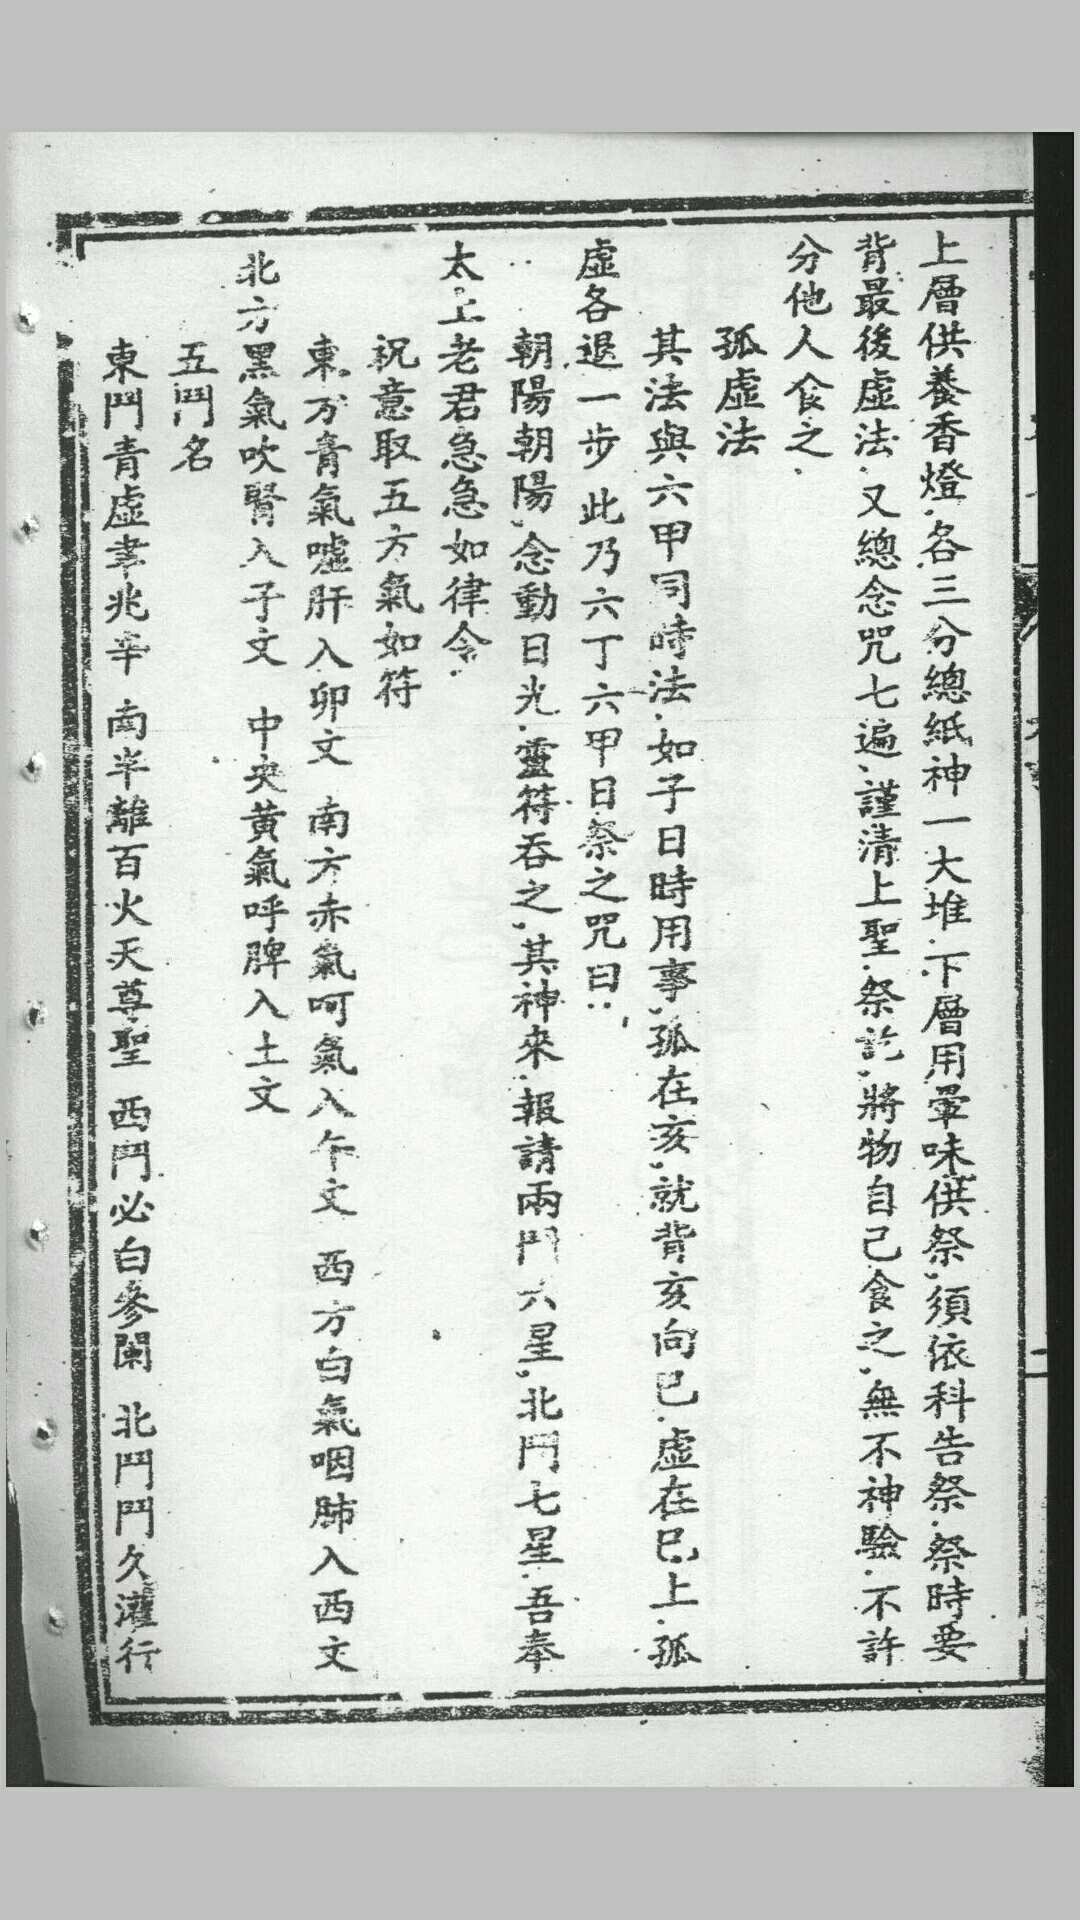 上層供養香燈.各三分總紙神一大堆.下層用暈味供祭.須依科告祭.祭時要
背最後虛法.又總念咒七遍.謹清上聖.祭訖.將物自己食之.無不神驗.不許
分他人食之.
孤虛法
其法與六甲司時法.如子日時用事.孤在亥.就背亥向巳.虛在巳.上.孤
虛各退一步 此乃六丁六甲日祭之咒曰..
朝陽朝陽.念動日光.靈符吞之.其神來.報請兩鬥六星.北鬥七星.吾奉
太上老君急急如律令.
祝意取五方氣如符
東方青氣噓肝入卯文 南方赤氣呵氣入午文 西方白氣咽肺入西文
北方黑氣吹腎入子文 中央黃氣呼脾入土文
五鬥名
東鬥青虛聿兆辛 南半離百火天尊聖 西鬥必白參闌 北鬥鬥久灌行